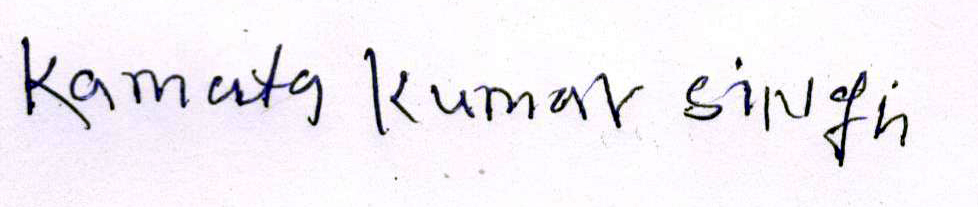 Kamata Kumar Singh